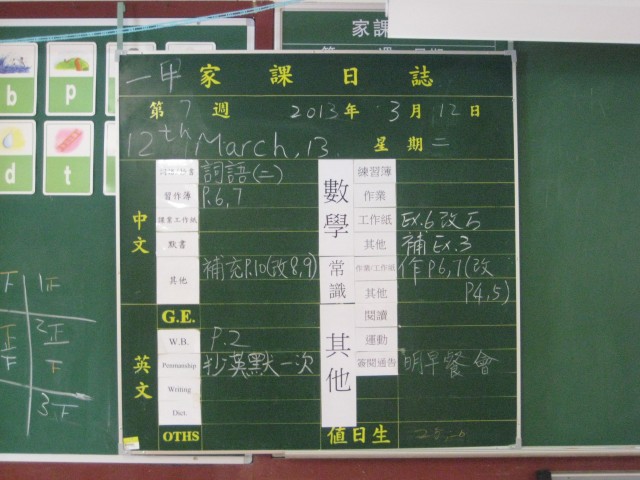 家課
一甲 家課日誌
第7週 2013年3月12日
12th March, 13. 星期二
中文
詞語(二)
習作簿 P.6,7
課業工作紙
默書
其他 補充P.10(改8,9)
數學
練習簿
作業
工作紙 Ex.6改5
其他 補Ex.3
常識
作業/工作紙 作P6,7(改
P4,5)
其他
英文
G.E.
W.B. P.2
Penmanship 抄英默一次
Writing
Dict.
OTHS
其他
閱讀
運動
簽閱通告 明早餐會
值日生
b
p
d
t
1正
2正
下
3下